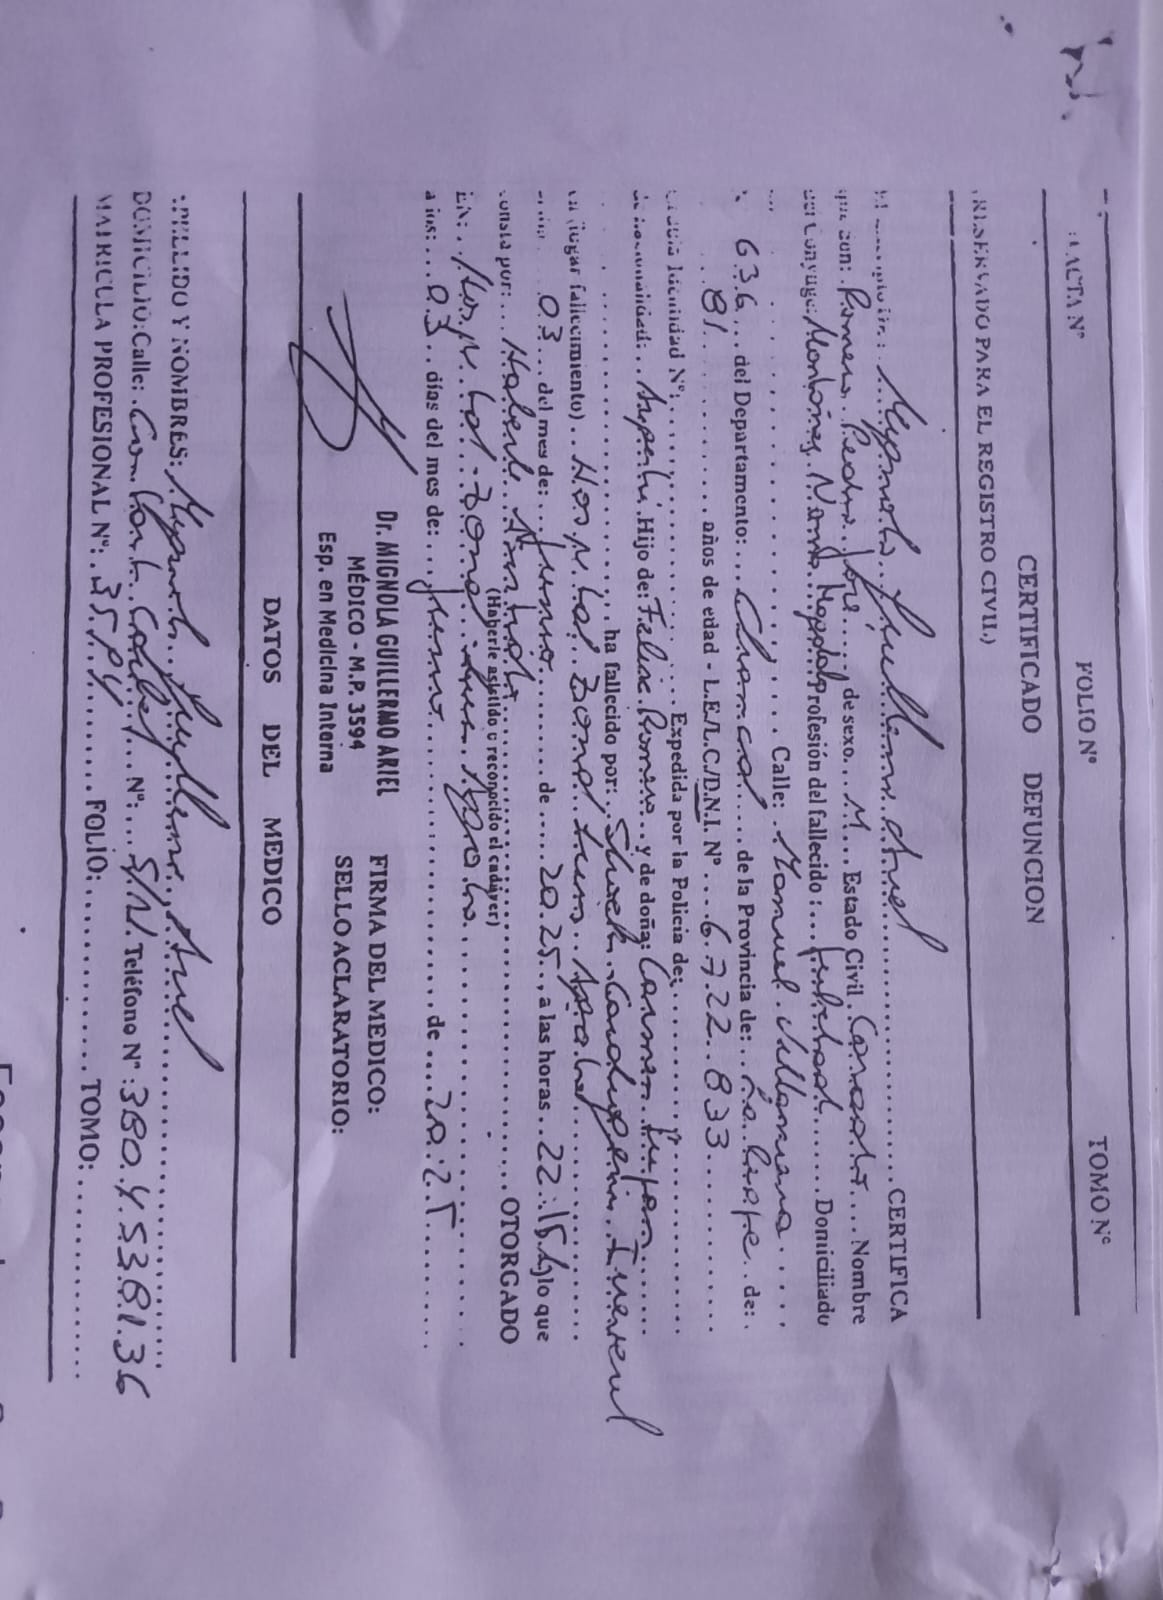 ACTA Nº FOLIO Nº TOMO Nº
(RESERVADO PARA EL REGISTRO CIVIL)
CERTIFICADO DEFUNCION
Mignola Guillermo Ariel CERTIFICA
que don: Romero Pedro José de sexo M Estado Civil Casado Nombre
del Conyuge: Norma Profesión del fallecido: Jubilado Domiciliado
Calle: Manuel Villarruana
636 del Departamento: Chamical de la Provincia de: La Rioja de:
81 años de edad - L.E/L.C./D.N.I. Nº 6.722.833
Identidad Nº: Expedida por la Policia de: y
de nacionalidad: Argentin Hijo de: Romero y de doña: Carmen
ha fallecido por: Shock Cardiogenico
(lugar fallecimiento) Hospital Zonal
03 del mes de: Junio de 2025, a las horas 22:15 lo que
consta por: Haberlo Asistido OTORGADO
(Haberle asistido o reconocido el cadáver)
EN: Hospital Zonal
a los: 03 días del mes de: Junio de 2025
Dr. MIGNOLA GUILLERMO ARIEL FIRMA DEL MEDICO:
MÉDICO - M.P. 3594 SELLO ACLARATORIO:
Esp. en Medicina Interna
DATOS DEL MEDICO
APELLIDO Y NOMBRES: Mignola Guillermo Ariel
DOMICILIO: Calle: Nº: S/N. Teléfono Nº: 380.4538136
MATRICULA PROFESIONAL Nº: 3594 FOLIO: TOMO: